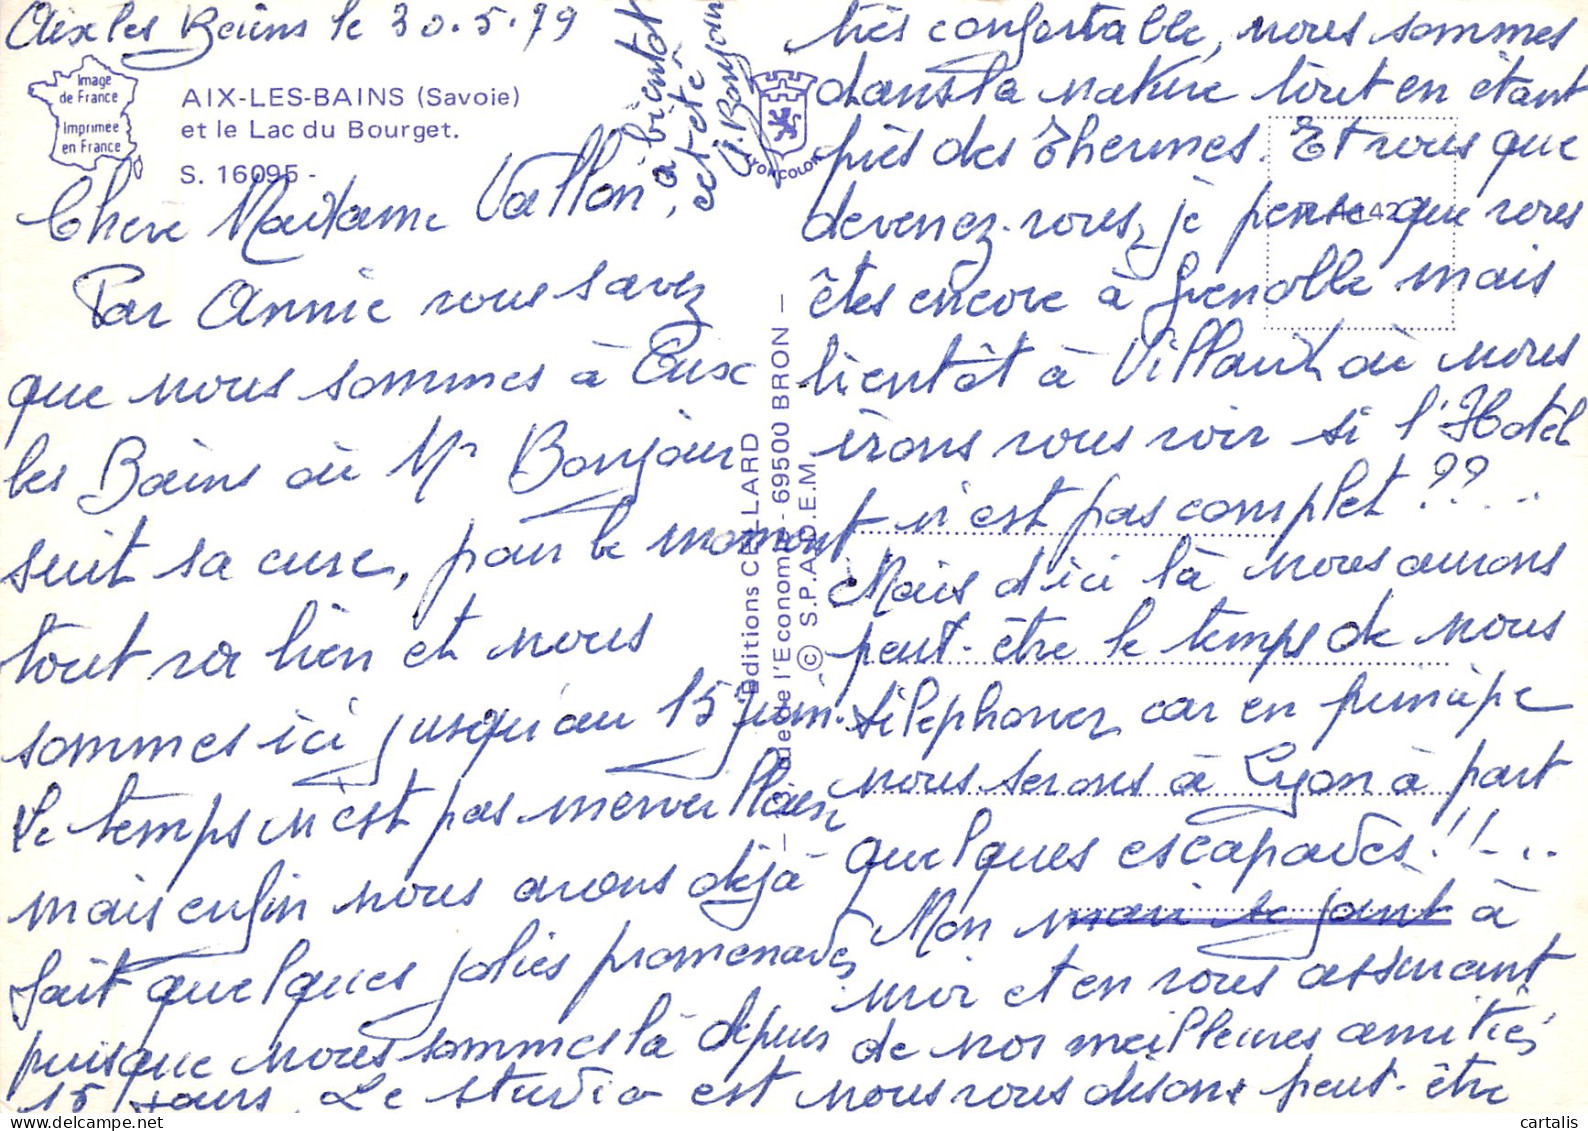 Aix les Bains le 30.5.79
Image
de France
Imprimée
en France
AIX-LES-BAINS (Savoie)
et le Lac du Bourget.
S. 16095 -
Chère Madame Vallon,
Par Annie vous savez
que nous sommes à Aix
les Bains où Mr Bonjour
suit sa cure, pour le moment
tout va bien et nous
sommes ici jusqu'au 15 juin.
Le temps n'est pas merveilleux
mais enfin nous avons déjà
fait quelques jolies promenades
puisque nous sommes là depuis
15 jours. Le studio est
très confortable, nous sommes
dans la nature tout en étant
près des Thermes. Et vous que
devenez-vous, je pense que vous
êtes encore à Grenoble mais
bientôt à Villard où nous
irons vous voir si l'Hotel
n'est pas complet ?? ...
Mais d'ici là nous aurons
peut-être le temps de nous
téléphoner car en principe
nous serons à Lyon à part
quelques escapades !! - ..
Mon mari se joint à
moi et en vous assurant
de nos meilleures amitiés
nous vous disons peut-être
à bientôt
cet été
J. Bonjour
LYONCOLOR
Editions CELLARD
- 69500 BRON -
© S.P.A.D.E.M.
cartalis